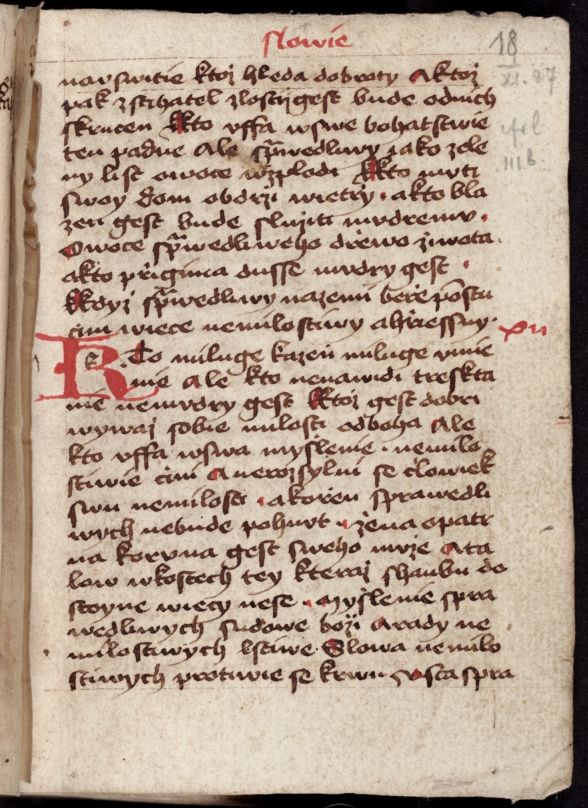 slowie
18
XI. 27
nawswitie ktoz hleda dobroty A ktoz
pak zstihatel zlosti gest bude odnich
skrucen Kto uffa wswe bohatstwie
ten padne Ale sprawedliwy iako zele
ny list owoce wzplodi Kto muti
swoy dom obdrzi wietry · akto bla
zen gest bude sluziti mudremu ·
Owoce sprawedliweho drzewo ziwota ·
akto przigima dusse mudry gest ·
Kdyz sprawedliwy nazemi berze pomstu
cim wiece nemilostiwy ahrziessny · xii
KTo miluge kazen miluge umie
nie Ale kto nenawidi treskta
nie nemudry gest Ktoz gest dobri
wywazi sobie milosti odboha Ale
kto uffa wswa myslenie · nemilo
stiwie cini A nerozsylni se clowiek
swu nemilosti · akorzen sprawedli
wych nebude pohnut · zena opatr
na koruna gest sweho muze A ta
low wkostech tey kteraz shanbu do
stoyne wiecy nese · Myslenie spra
wedliwych sudowe bozi Arady ne
milostiwych lstiwe · Slowa nemilo
stiwych protiwie se krwi · Usta spra